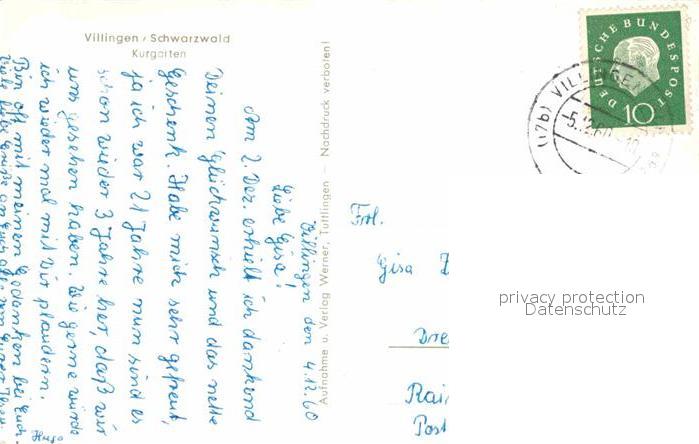 Villingen / Schwarzwald
Kurgarten
Villingen den 4.12.60
Liebe Gisa!
Am 2. Dez. erhielt ich dankend
Deinen Glückwunsch und das nette
Geschenk. Habe mich sehr gefreut,
ja ich war 21 Jahre nun sind es
schon wieder 3 Jahre her, daß wir
uns gesehen haben. Wie gerne würde
ich wieder mal mit Dir plaudern.
Bin oft mit meinen Gedanken bei Euch.
Viele liebe Grüße an Euch alle, von Eurer
Hugo
Aufnahme u. Verlag Werner, Tuttlingen — Nachdruck verboten!
DEUTSCHE BUNDESPOST
10
(17b) VILLINGEN
-5.12.60.-10
Frl.
Gisa
Dre
Rai
Post
privacy protection
Datenschutz